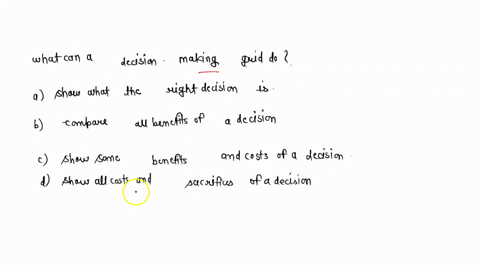 what can a decision. making grid do?
a) show what the right decision is.
b) compare all benefits of a decision
c) show some benefits and costs of a decision.
d) show all costs and sacrifius of a decision